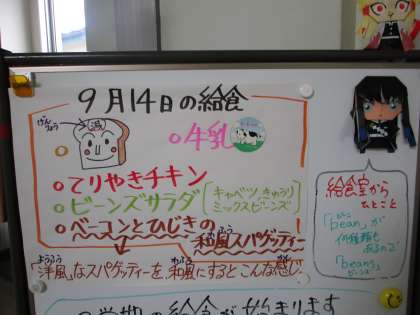 9月14日の給食
げんりょう
減
○牛乳
○てりやきチキン
○ビーンズサラダ[キャベツ、きゅうり ミックスビーンズ]
○ベーコンとひじきの
和風スパゲッティー
ようふう わふう
「洋風」なスパゲッティーを、和風にするとこんな感じ
給食室から
ひとこと
「bean」が
「beans」
学期の給食が始まります